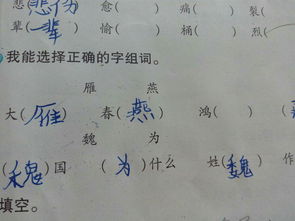 悲(悲伤) 愈( ) 痛( ) 裂(
辈(一辈) 愉( ) 桶( ) 烈(
我能选择正确的字组词。
雁 燕
大(雁) 春(燕) 鸿( )
魏 为
(魏)国 (为)什么 姓(魏) 作
填空。